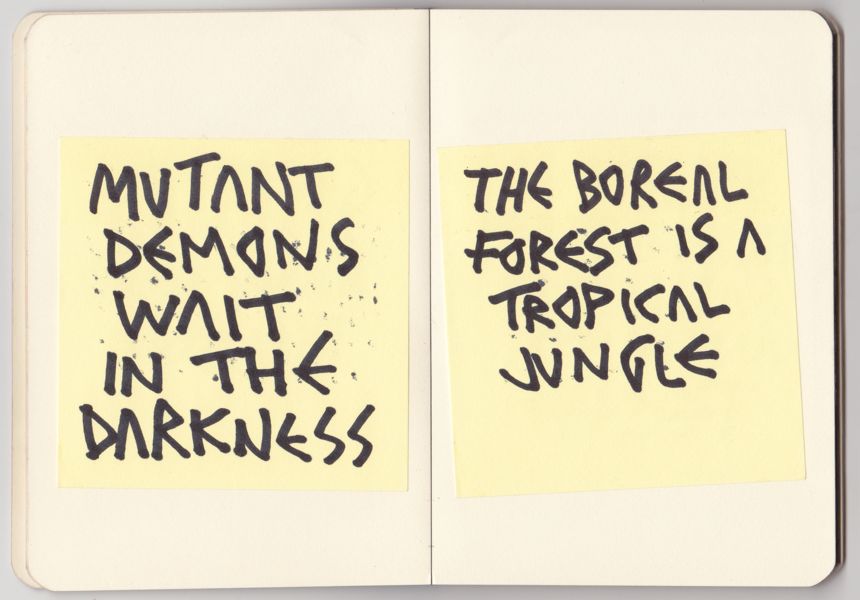 MUTANT
DEMONS
WAIT
IN THE
DARKNESS
THE BOREAL
FOREST IS A
TROPICAL
JUNGLE